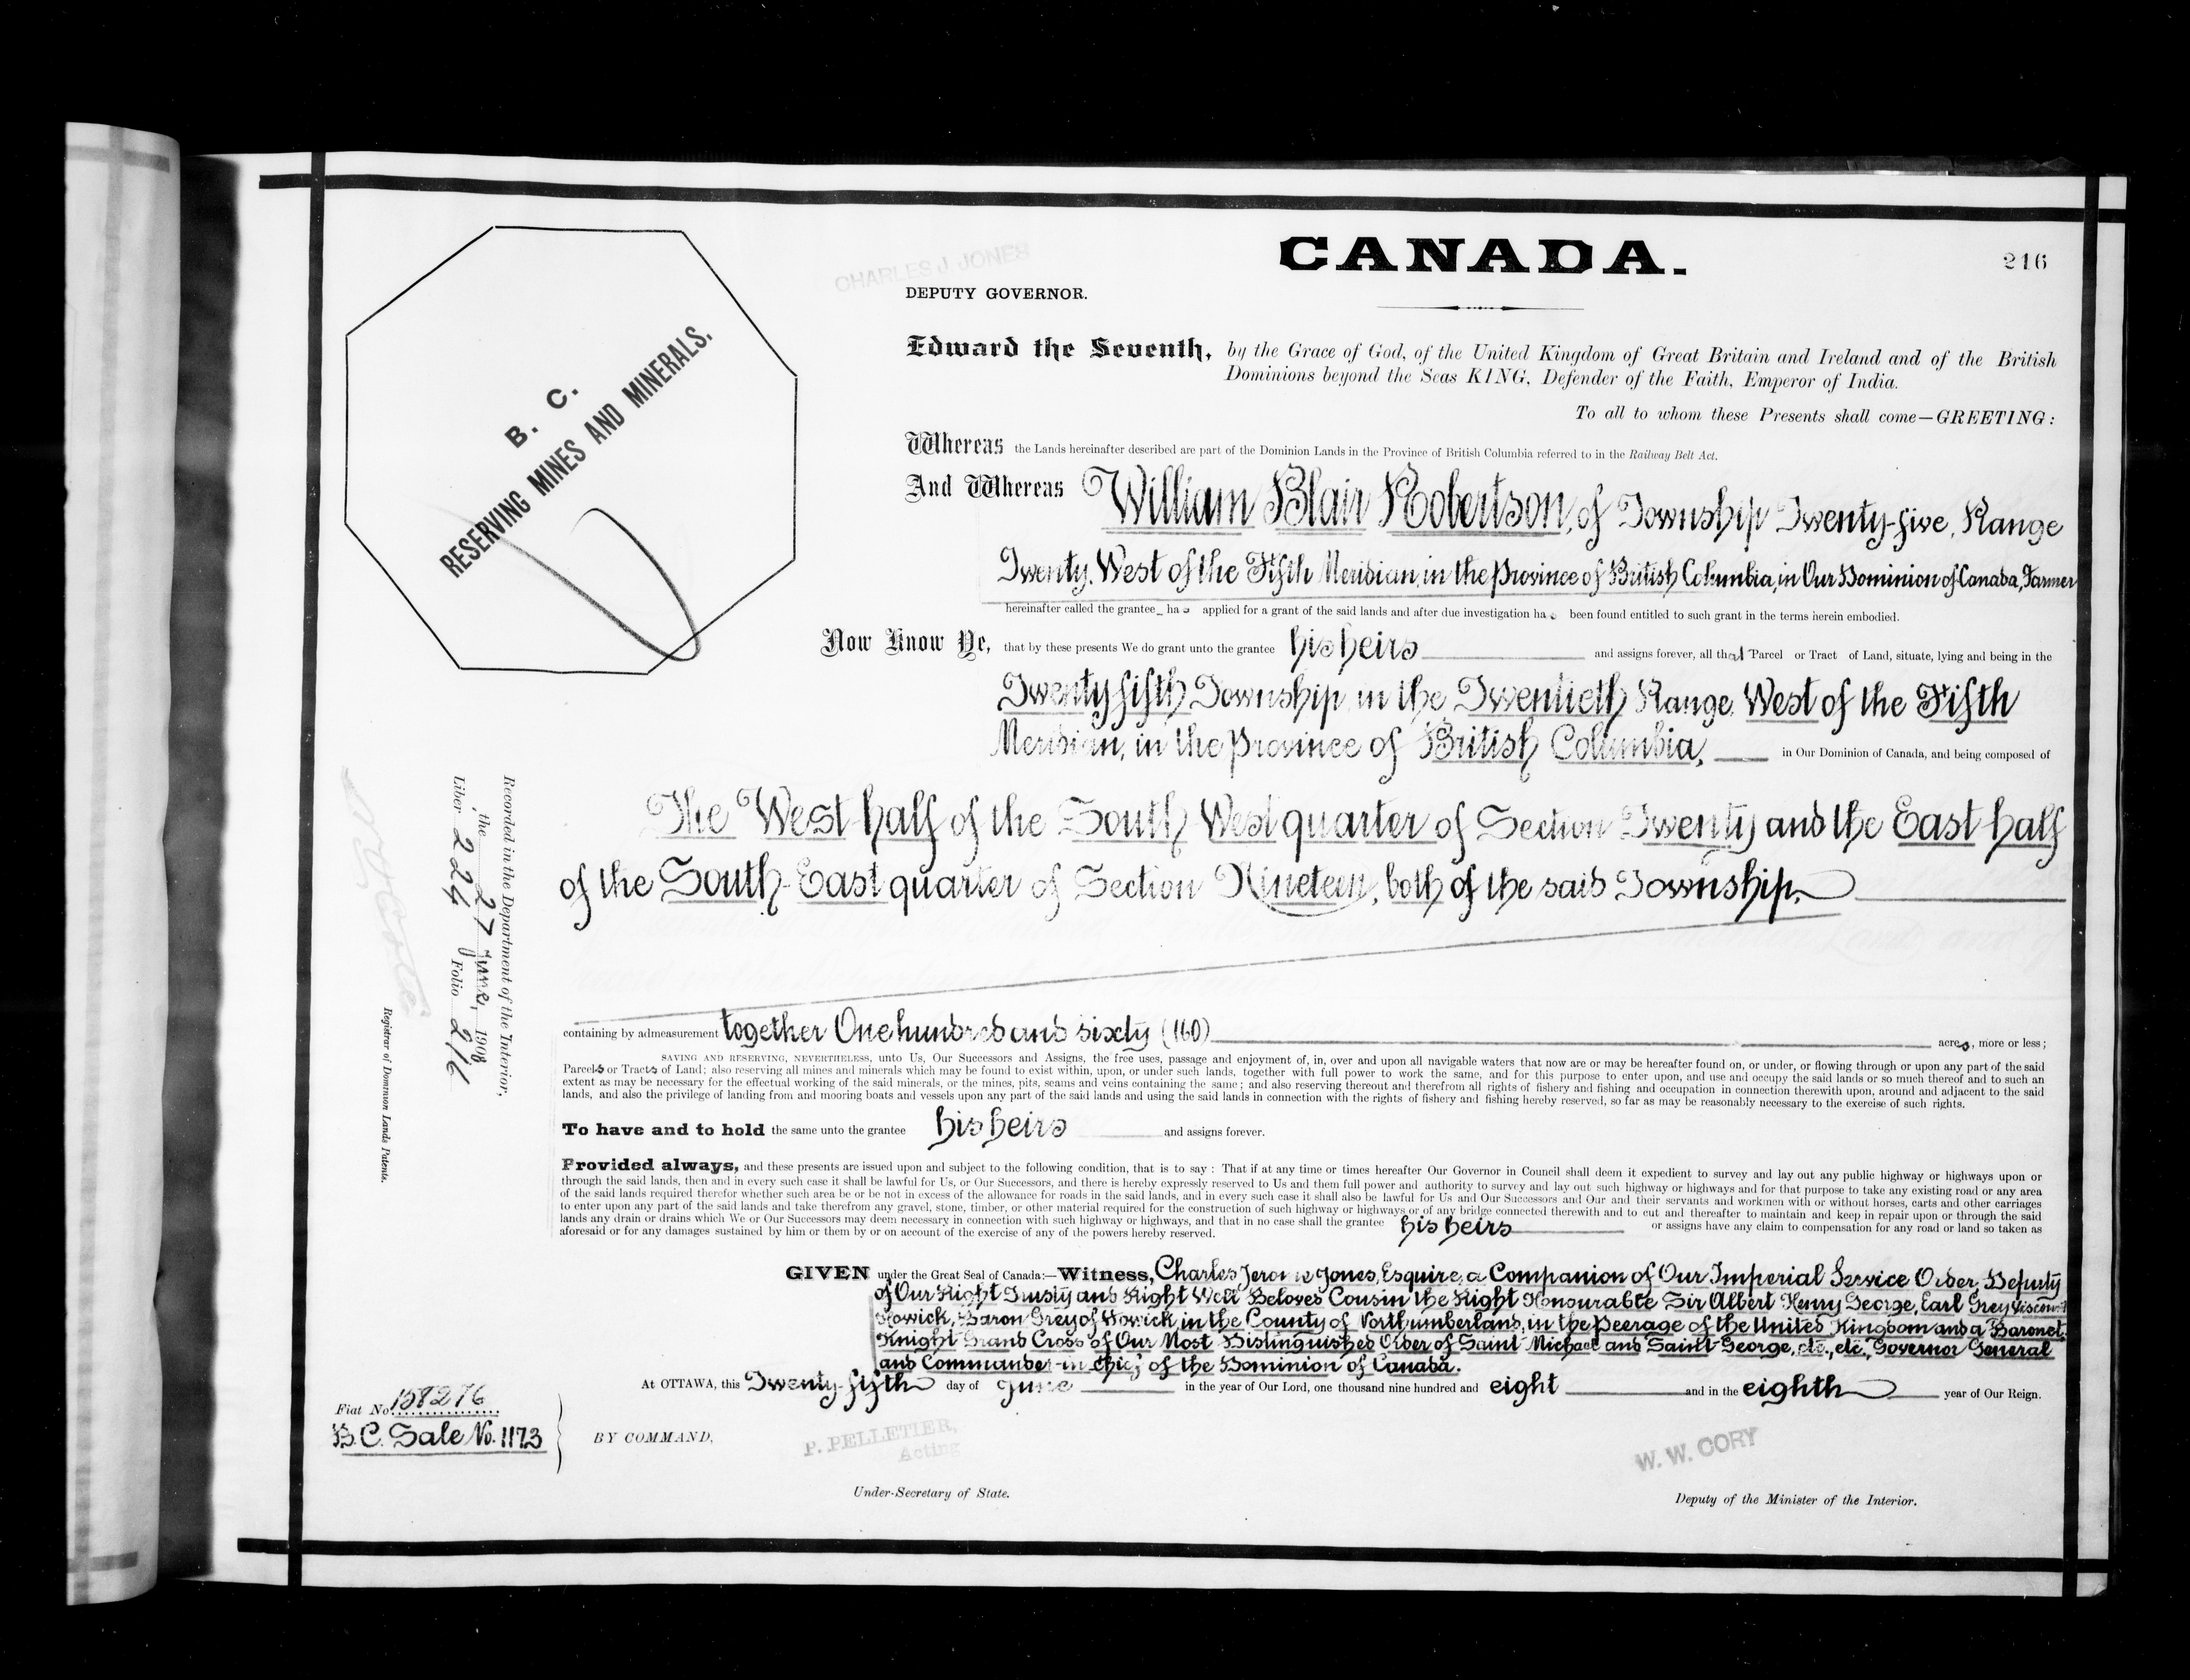 CANADA.
216
CHARLES J JONES
DEPUTY GOVERNOR.
Edward the Seventh, by the Grace of God, of the United Kingdom of Great Britain and Ireland and of the British
Dominions beyond the Seas KING, Defender of the Faith, Emperor of India.
To all to whom these Presents shall come—GREETING:
B. C.
RESERVING MINES AND MINERALS.
Whereas the Lands hereinafter described are part of the Dominion Lands in the Province of British Columbia referred to in the Railway Belt Act.
And Whereas William Blair Robertson, of Township Twenty-five, Range
Twenty, West of the Fifth Meridian, in the Province of British Columbia, in Our Dominion of Canada, Farmer
hereinafter called the grantee ha s applied for a grant of the said lands and after due investigation ha s been found entitled to such grant in the terms herein embodied.
Now Know Ye, that by these presents We do grant unto the grantee his heirs and assigns forever, all that Parcel or Tract of Land, situate, lying and being in the
Twenty fifth Township, in the Twentieth Range, West of the Fifth
Meridian, in the Province of British Columbia, in Our Dominion of Canada, and being composed of
The West half of the South West quarter of Section Twenty and the East half
of the South-East quarter of Section Nineteen, both of the said Township.
containing by admeasurement together One hundred and sixty (160) acres, more or less;
SAVING AND RESERVING, NEVERTHELESS, unto Us, Our Successors and Assigns, the free uses, passage and enjoyment of, in, over and upon all navigable waters that now are or may be hereafter found on, or under, or flowing through or upon any part of the said
Parcels or Tracts of Land; also reserving all mines and minerals which may be found to exist within, upon, or under such lands, together with full power to work the same, and for this purpose to enter upon, and use and occupy the said lands or so much thereof and to such an
extent as may be necessary for the effectual working of the said minerals, or the mines, pits, seams and veins containing the same; and also reserving thereout and therefrom all rights of fishery and fishing and occupation in connection therewith upon, around and adjacent to the said
lands, and also the privilege of landing from and mooring boats and vessels upon any part of the said lands and using the said lands in connection with the rights of fishery and fishing hereby reserved, so far as may be reasonably necessary to the exercise of such rights.
To have and to hold the same unto the grantee his heirs and assigns forever.
Provided always, and these presents are issued upon and subject to the following condition, that is to say: That if at any time or times hereafter Our Governor in Council shall deem it expedient to survey and lay out any public highway or highways upon or
through the said lands, then and in every such case it shall be lawful for Us, or Our Successors, and there is hereby expressly reserved to Us and them full power and authority to survey and lay out such highway or highways and for that purpose to take any existing road or any area
of the said lands required therefor whether such area be or be not in excess of the allowance for roads in the said lands, and in every such case it shall also be lawful for Us and Our Successors and Our and their servants and workmen with or without horses, carts and other carriages
to enter upon any part of the said lands and take therefrom any gravel, stone, timber, or other material required for the construction of such highway or highways or of any bridge connected therewith and to cut and thereafter to maintain and keep in repair upon or through the said
lands any drain or drains which We or Our Successors may deem necessary in connection with such highway or highways, and that in no case shall the grantee his heirs or assigns have any claim to compensation for any road or land so taken as
aforesaid or for any damages sustained by him or them by or on account of the exercise of any of the powers hereby reserved.
GIVEN under the Great Seal of Canada:—Witness, Charles Jerome Jones, Esquire, a Companion of Our Imperial Service Order, Deputy
of Our Right Trusty and Right Well Beloved Cousin the Right Honourable Sir Albert Henry George, Earl Grey Viscount
Howick, Baron Grey of Howick, in the County of Northumberland, in the Peerage of the United Kingdom and a Baronet,
Knight Grand Cross of Our Most Distinguished Order of Saint Michael and Saint George, etc., etc., Governor General
and Commander-in-Chief of the Dominion of Canada.
At OTTAWA, this Twenty-fifth day of June in the year of Our Lord, one thousand nine hundred and eight and in the eighth year of Our Reign.
Fiat No. 158276
B.C. Sale No. 1173
BY COMMAND,
P. PELLETIER,
Acting
Under-Secretary of State.
W. W. CORY
Deputy of the Minister of the Interior.
Recorded in the Department of the Interior,
the 27 June, 1908
Liber 224 Folio 216
Registrar of Dominion Lands Patents.